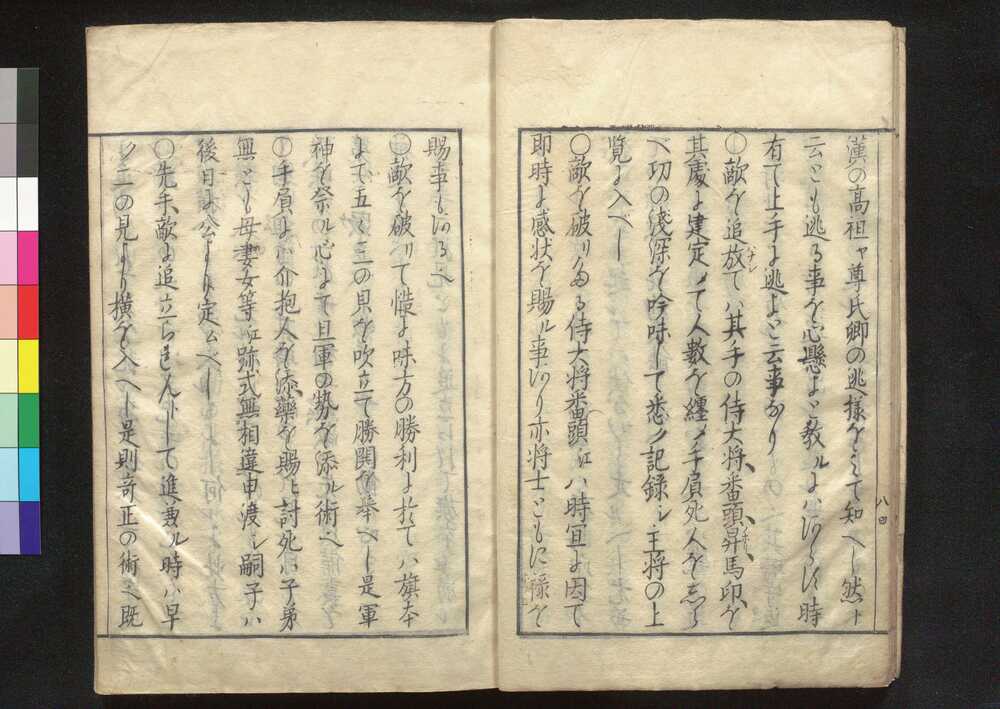 漢の高祖ヤ尊氏卿の逃様をミて知へし然ト
云とも逃る事を心懸よと教ルよハあらす時
有て上手ょ逃よと云事なり
〇敵を追放てハ其手の侍大将、番頭、昇馬印、を
ハナシ
ノホリ
其處ょ建定〆て人數を纒〆手負死人を志らへ
切の淺深を吟味して悉ク記録シ主将の上
覧ょ入へし
〇敵を破りたる侍大将番頭江ハ時宜ょ因て
即時ょ感状を賜ル事あり亦将士ともに禄を
八ノ四
賜事もある也
〇敵を破りて慥ょ味方の勝利ょ於てハ旗本
よて五々三の貝を吹立て勝閧を奉へし是軍
神を祭ル心よて且軍の勢を添ル術也
〇手負よハ介抱人を添藥を賜ヒ討死ハ子弟
無とも母妻女等江跡式無相違申渡シ嗣子ハ
後日ょ公より定ムへし
〇先手、敵ょ追立られんトして進兼ル時ハ早
ク二の見より横を入へし是則竒正の術也既